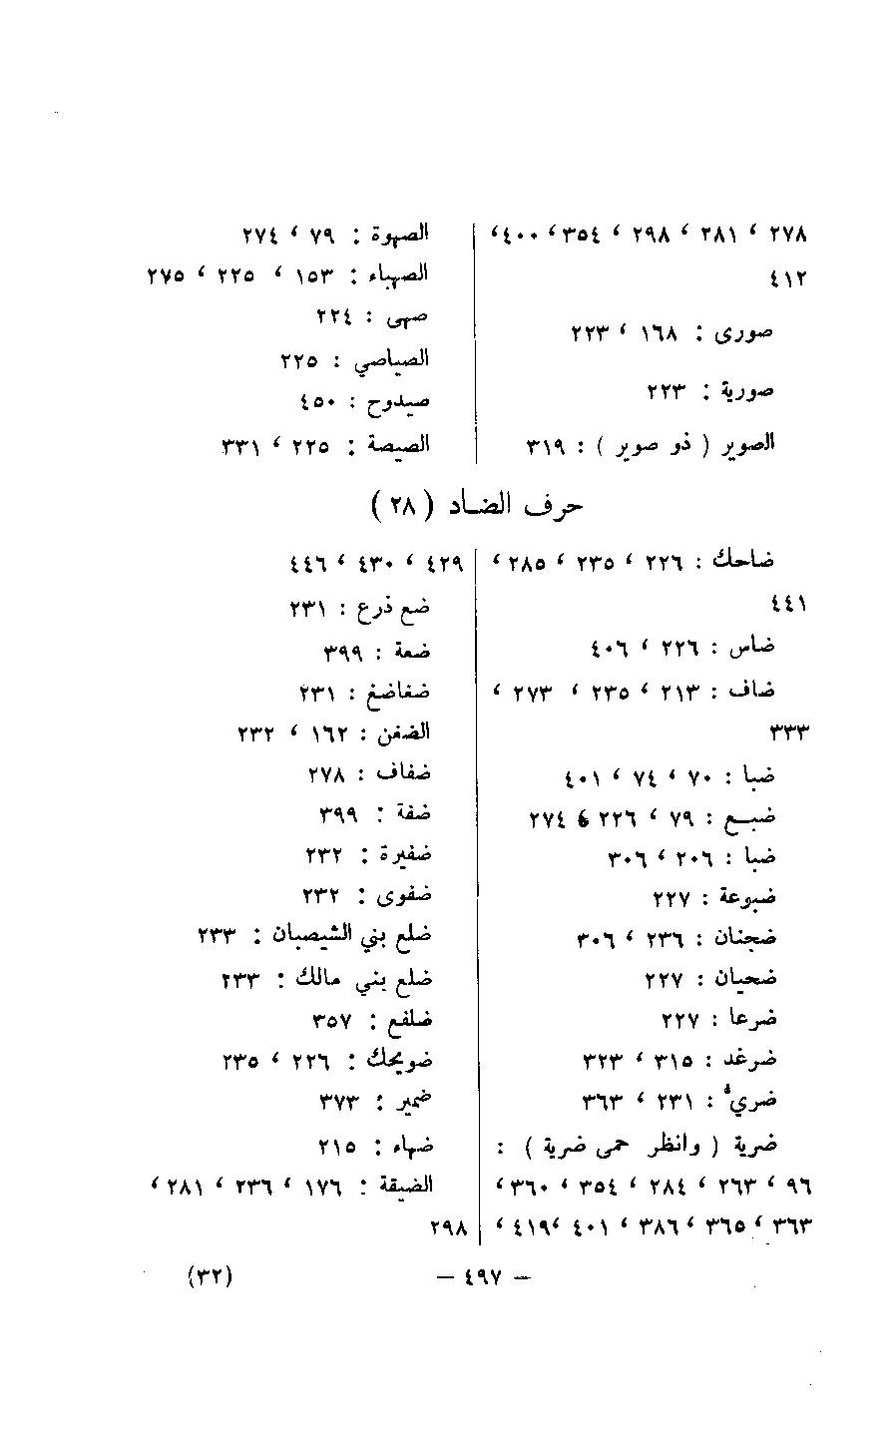 ٢٧٨ ، ٢٨١ ، ٢٩٨ ، ٣٥٤ ، ٤٠٠ ،
٤١٢
صورى : ١٦٨ ، ٢٢٣
صورية : ٢٢٣
الصوير ( ذو صوير ) : ٣١٩
الصهوة : ٧٩ ، ٢٧٤
الصهباء : ١٥٣ ، ٢٢٥ ، ٢٧٥
صهى : ٢٢٤
الصياصي : ٢٢٥
صيدوح : ٤٥٠
الصيصة : ٢٢٥ ، ٣٣١
حرف الضاد ( ٢٨ )
ضاحك : ٢٢٦ ، ٢٣٥ ، ٢٨٥ ،
٤٤١
ضاس : ٢٢٦ ، ٤٠٦
ضاف : ٢١٣ ، ٢٣٥ ، ٢٧٣ ،
٣٣٣
ضبا : ٧٠ ، ٧٤ ، ٤٠١
ضبع : ٧٩ ، ٢٢٦ ، ٢٧٤
ضبا : ٢٠٦ ، ٣٠٦
ضبوعة : ٢٢٧
ضجنان : ٢٣٦ ، ٣٠٦
ضحيان : ٢٢٧
ضرعا : ٢٢٧
ضرغد : ٣١٥ ، ٣٢٣
ضري : ٢٣١ ، ٣٦٣
ضرية ( وانظر حمى ضرية ) :
٩٦ ، ٢٦٣ ، ٢٨٤ ، ٣٥٤ ، ٣٦٠ ،
٣٦٣ ، ٣٦٥ ، ٣٨٦ ، ٤٠١ ، ٤١٩ ،
٤٢٩ ، ٤٣٠ ، ٤٤٦
ضع ذرع : ٢٣١
ضعة : ٣٩٩
ضغاضغ : ٢٣١
الضغن : ١٦٢ ، ٢٣٢
ضفاف : ٢٧٨
ضفة : ٣٩٩
ضفيرة : ٢٣٢
ضفوى : ٢٣٢
ضلع بني الشيصبان : ٢٣٣
ضلع بني مالك : ٢٣٣
ضلفع : ٣٥٧
ضويحك : ٢٢٦ ، ٢٣٥
ضمير : ٣٧٣
ضهاء : ٢١٥
الضيقة : ١٧٦ ، ٢٣٦ ، ٢٨١ ،
٢٩٨
— ٤٩٧ —
(٣٢)